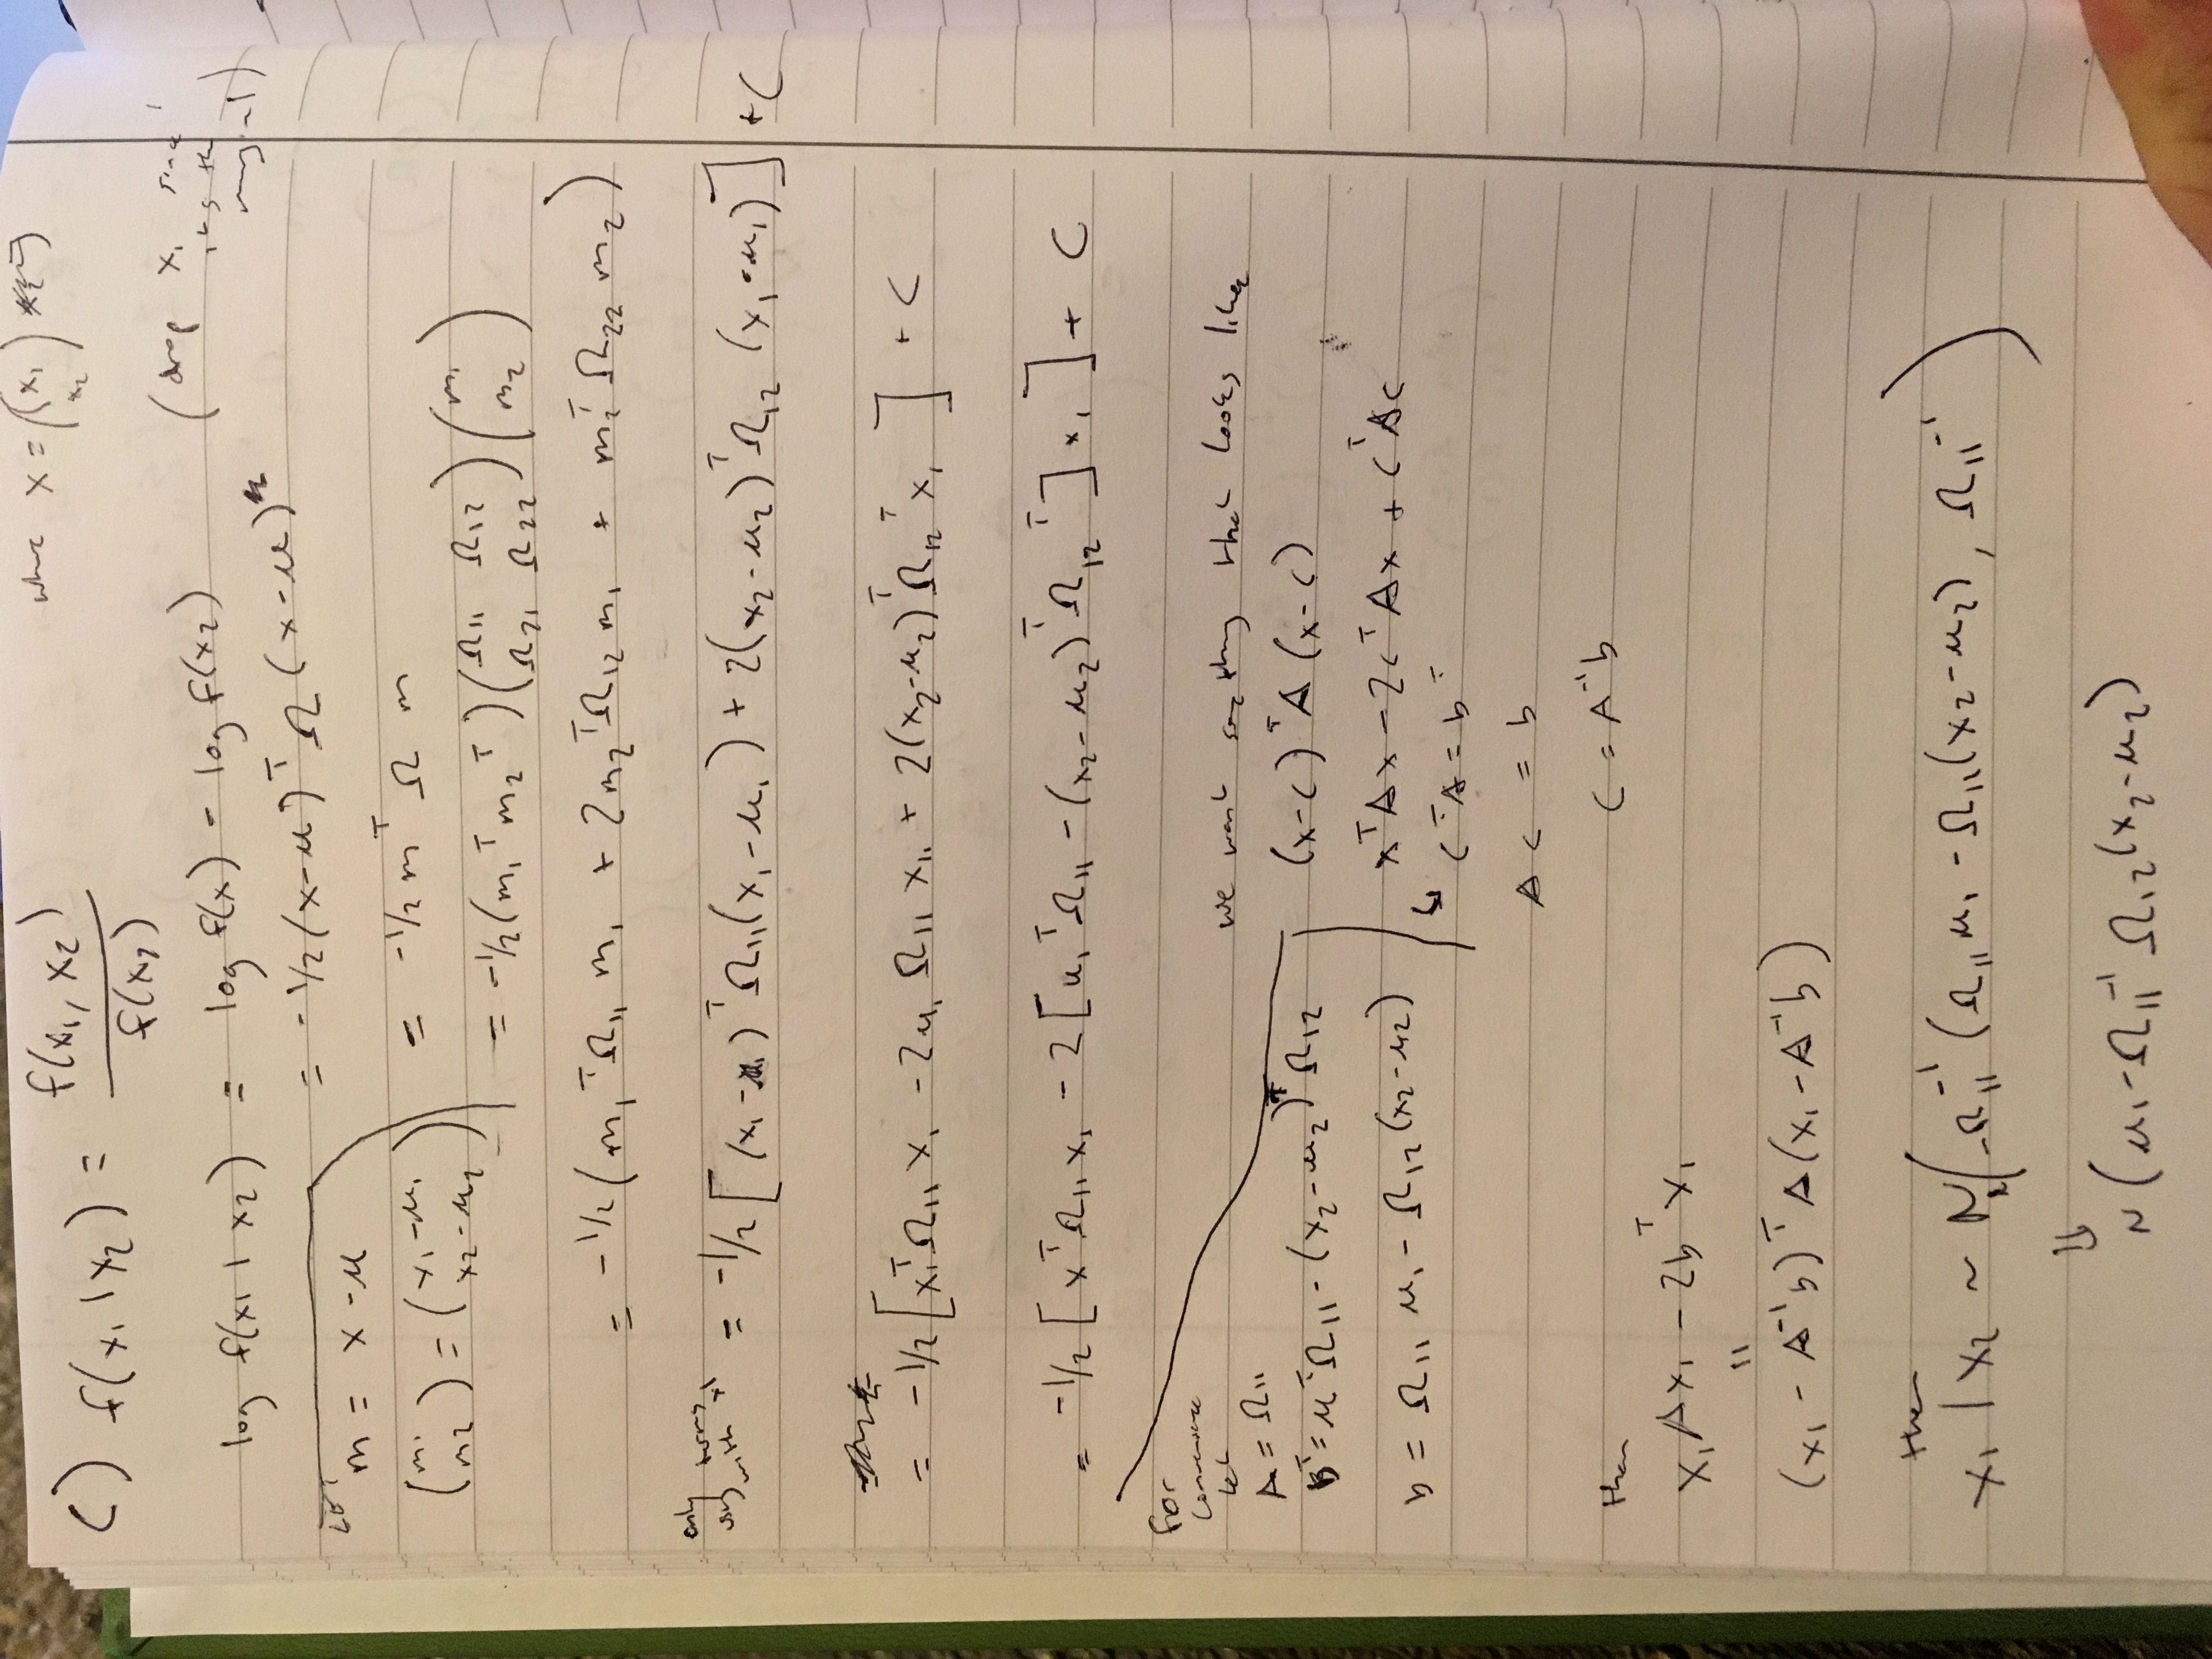 where x = (x₁ x₂)
c) f(x₁|x₂) = f(x₁, x₂) / f(x₂)
(drop x₁ since its the marginal)
log f(x₁|x₂) = log f(x) - log f(x₂)
= -1/2 (x-μ)ᵀ Ω (x-μ)
LET m = x - μ
= -1/2 mᵀ Ω m
(m₁ m₂) = (x₁-μ₁ x₂-μ₂)
= -1/2 (m₁ᵀ m₂ᵀ) (Ω₁₁ Ω₁₂ Ω₂₁ Ω₂₂) (m₁ m₂)
= -1/2 (m₁ᵀ Ω₁₁ m₁ + 2m₂ᵀ Ω₁₂ m₁ + m₂ᵀ Ω₂₂ m₂)
only using terms with x1
= -1/2 [(x₁-μ₁)ᵀ Ω₁₁ (x₁-μ₁) + 2(x₂-μ₂)ᵀ Ω₁₂ (x₁-μ₁)] + C
= -1/2 [x₁ᵀ Ω₁₁ x₁ - 2μ₁ Ω₁₁ x₁₁ + 2(x₂-μ₂)ᵀ Ω₁₂ᵀ x₁] + C
= -1/2 [xᵀ Ω₁₁ x₁ - 2[μ₁ᵀ Ω₁₁ - (x₂-μ₂)ᵀ Ω₁₂ᵀ] x₁] + C
For
convenience
let
A = Ω₁₁
bᵀ = μᵀ Ω₁₁ - (x₂-μ₂)ᵀ Ω₁₂
b = Ω₁₁ μ₁ - Ω₁₂ (x₂-μ₂)
we want something that looks like
(x-c)ᵀ A (x-c)
xᵀAx - 2cᵀAx + cᵀAc
↳ cᵀA = bᵀ
Ac = b
c = A⁻¹b
then
x₁Ax₁ - 2bᵀx₁
||
(x₁ - A⁻¹b)ᵀ A (x₁ - A⁻¹b)
then
x₁|x₂ ~ N(Ω₁₁⁻¹ (Ω₁₁ μ₁ - Ω₁₁ (x₂-μ₂), Ω₁₁⁻¹)
⇓
N(μ₁ - Ω₁₁⁻¹ Ω₁₂ (x₂-μ₂)